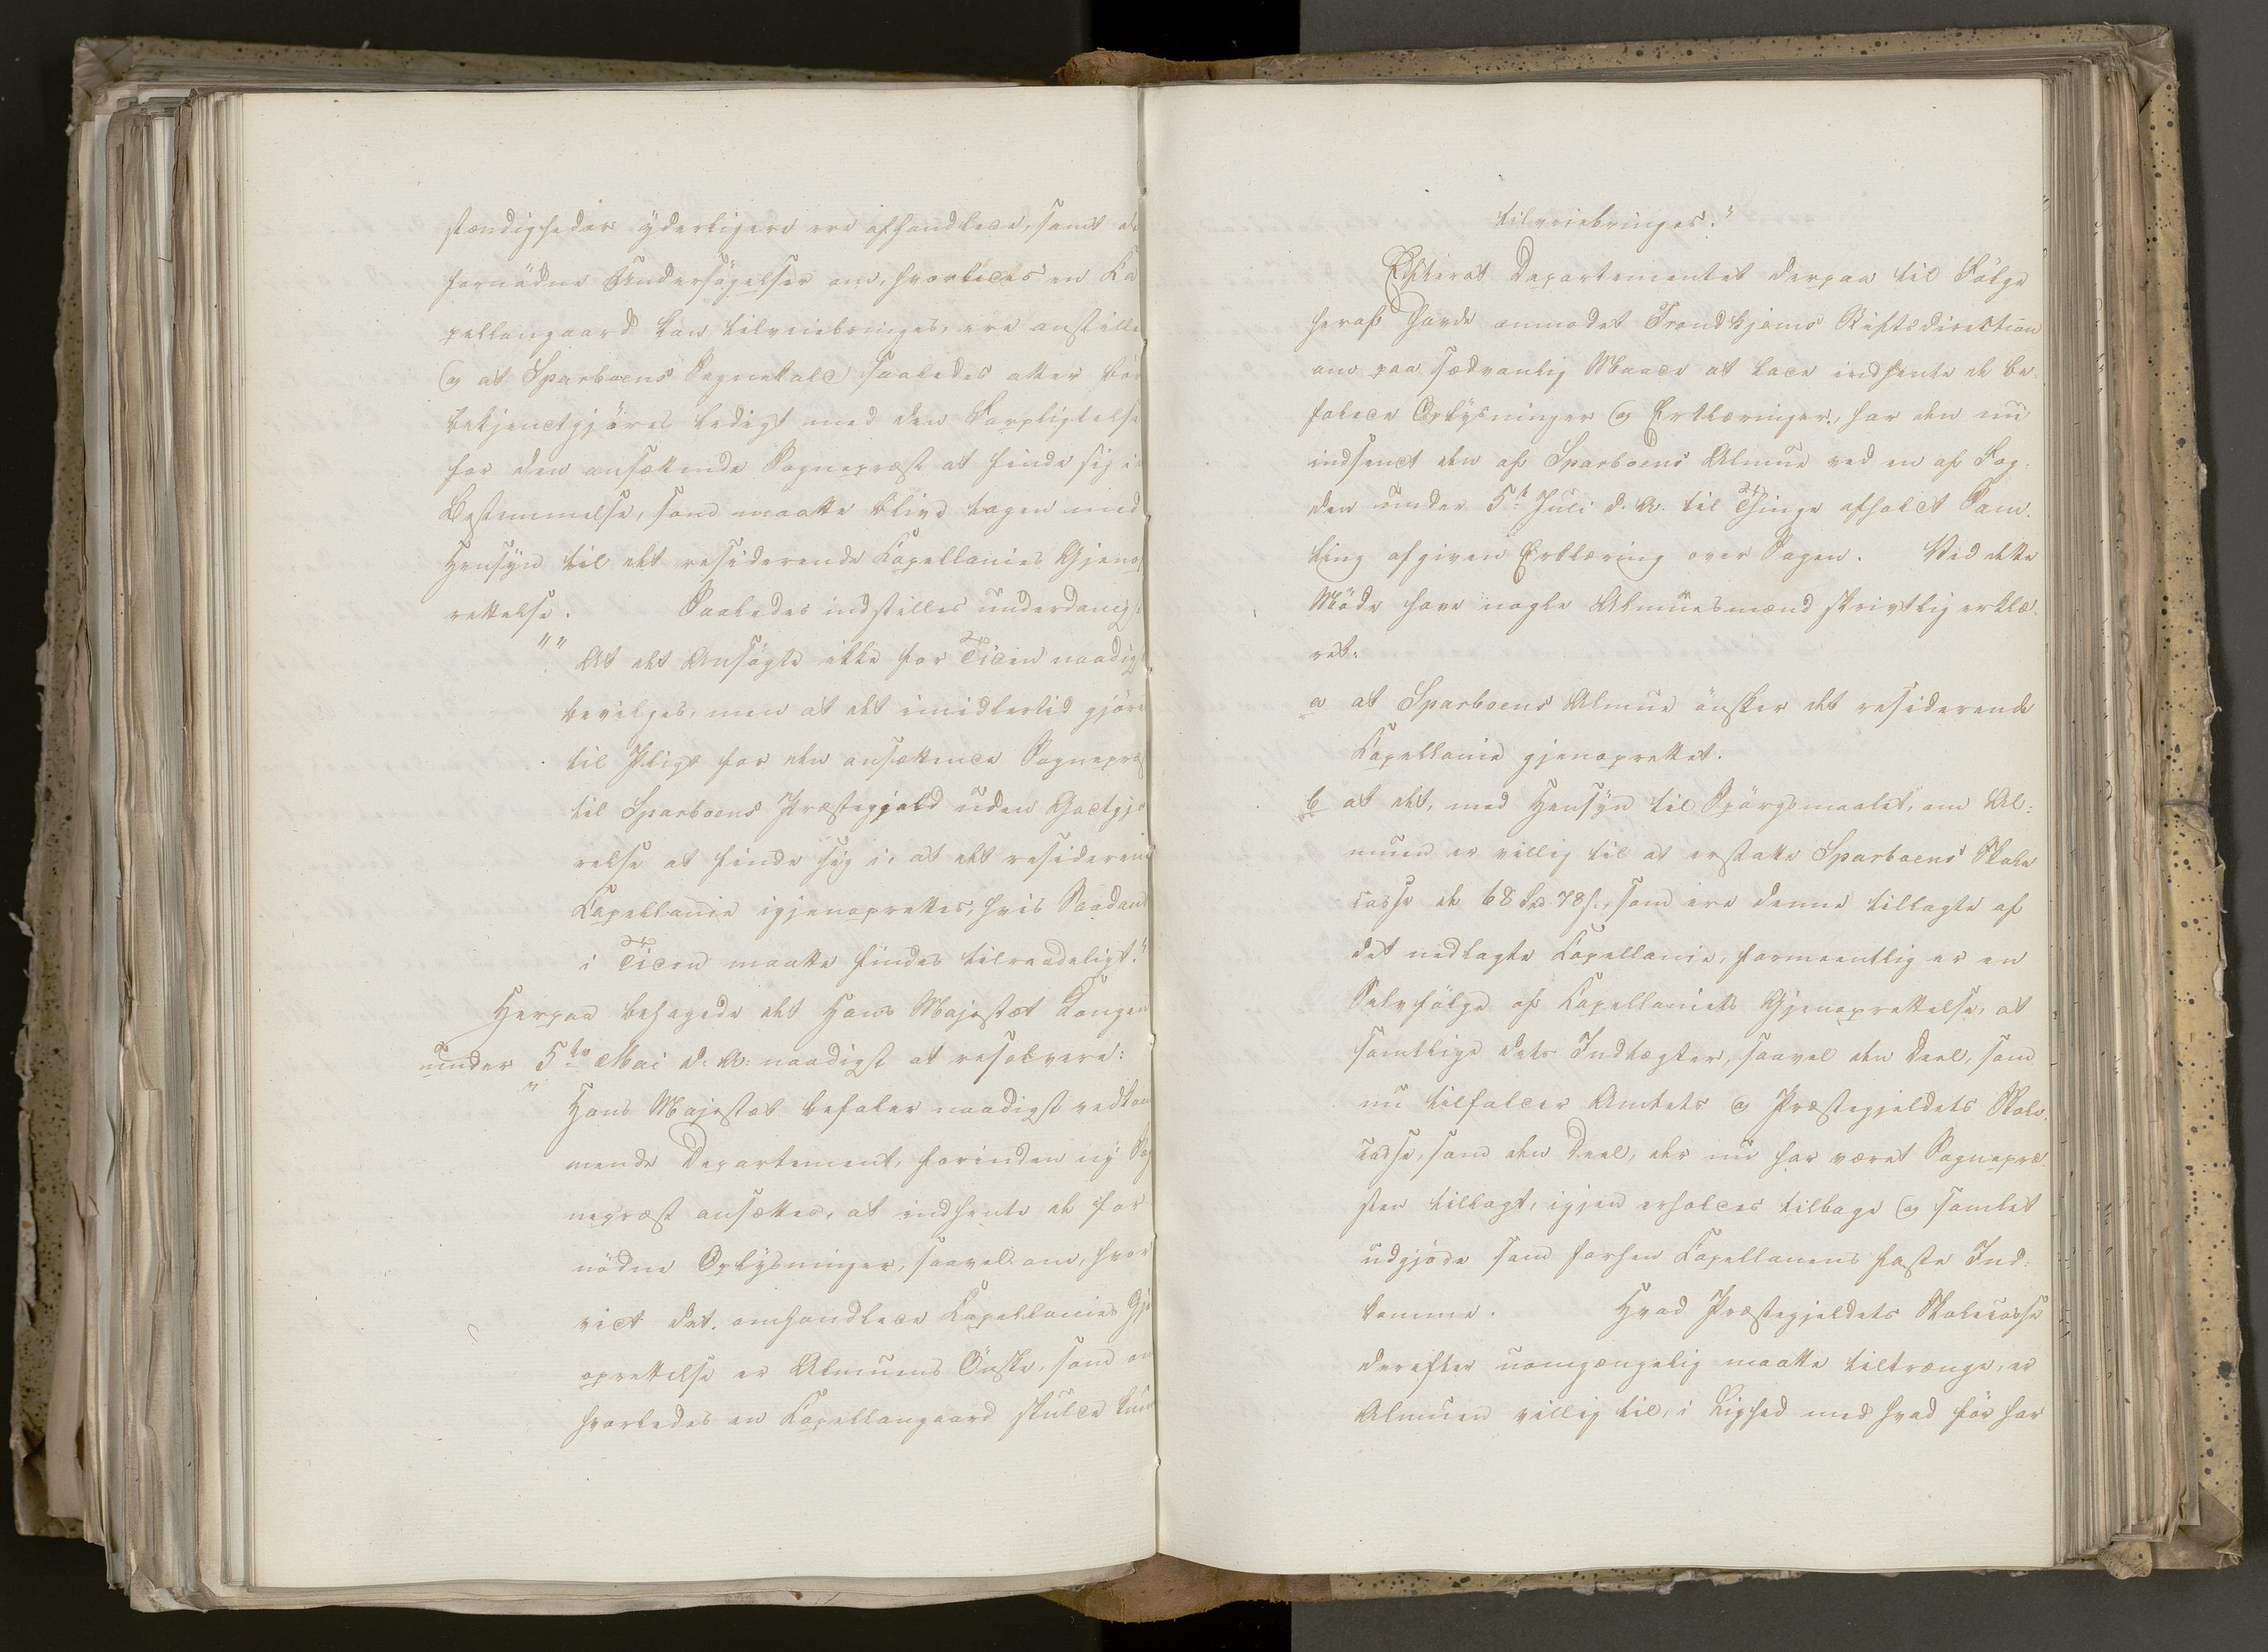 stændigheder yderligere ere afhandlede, samt de
fornødne Undersøgelser om, hvorledes en Ca
pellangaard kan tilveiebringes, ere anstille
og at Sparboens Sognekald saaledes atter bør
bekjendtgjøres ledigt med den Forpligtelse
for den ansættende Sognepræst at finde sig i
Bestemmelse, som maatte blive tagen med
Hensyn til det residerende Capellanies Gjenop
rettelse. Saaledes indstilles underdanigst:
"" At det Ansøgte ikke for Tiden naadigst
bevilges, men at det imidlertid gjøres
til Pligt for den ansættende Sognepræst
til Sparboens Præstegjeld uden Godtgjø
relse at finde sig i, at det residerende
Capellanie igjenoprettes, hvis Saadant
i Tiden maatte findes tilraadeligt."
Herpaa behagede det Hans Majestæt Kongen
under 5te Mai d. A. naadigst at resolvere:
"Hans Majestæt befaler naadigst vedkom
mende Departement, forinden ny Sog
nepræst ansættes, at indhente de for
nødne Oplysninger, saavel om, hvor
vidt det omhandlede Capellanies Gjen
oprettelse er Almuens Ønske, som om
hvorledes en Capellangaard skulde kun
tilveiebringes."
Efterat Departementet derpaa til Følge
heraf havde anmodet Trondhjems Stiftsdirektion
om paa sædvanlig Maade at lade indhente de be-
falede Oplysninger og Erklæringer, har den nu
indsendt den af Sparboens Almue ved en af Fog-
den under 5te Juli d. A. til Thinge afholdt Sam-
ling afgiven Erklæring over Sagen. Ved dette
Møde have nogle Almuesmænd skrivtlig erklæ-
ret:
a at Sparboens Almue ønsker det residerende
Capellanie gjenoprettet.
b at det, med Hensyn til Spørgsmaalet, om Al-
muen er villig til at erstatte Sparboens Skole
casse de 68 Spd 78 s., som ere denne tillagte af
det nedlagte Capellanie, formeentlig er en
Selvfølge af Capellaniets Gjenoprettelse, at
samtlige dets Indtægter, saavel den Deel, som
nu tilfalder Amtets og Præstegjeldets Skole-
casse, som den Deel, der nu har været Sognepræ
sten tillagt, igjen erholdes tilbage og samlet
udgjøre som forhen Capellanens faste Ind-
komme. Hvad Præstegjeldets Skolecasse
derefter uomgængelig maatte tiltrænge, er
Almuen villig til, i Lighed med hvad før har